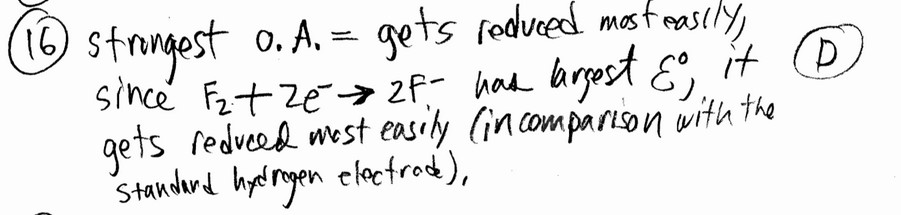 (16) strongest O.A. = gets reduced most easily,
since F₂ + 2e⁻ → 2F⁻ has largest ℰ°, it (D)
gets reduced most easily (in comparison with the
standard hydrogen electrode),